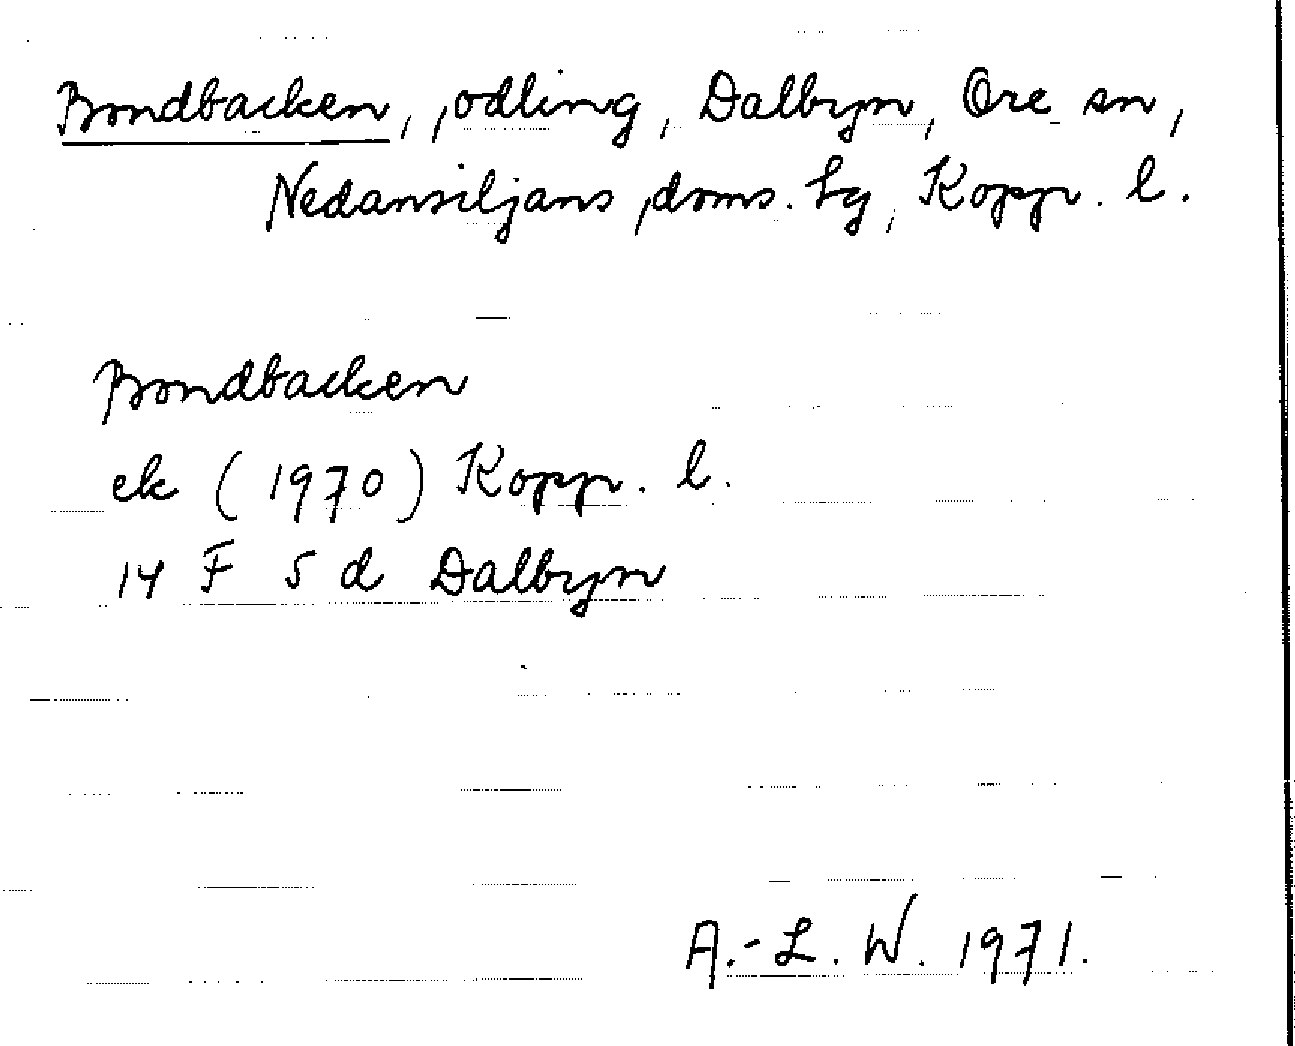 Bondbacken, odling, Dalbyn, Ore sn,
Nedansiljans doms. hg, Kopp. l.
Bondbacken
ek (1970) Kopp. l.
14 F 5 d Dalbyn
A.-L. W. 1971.